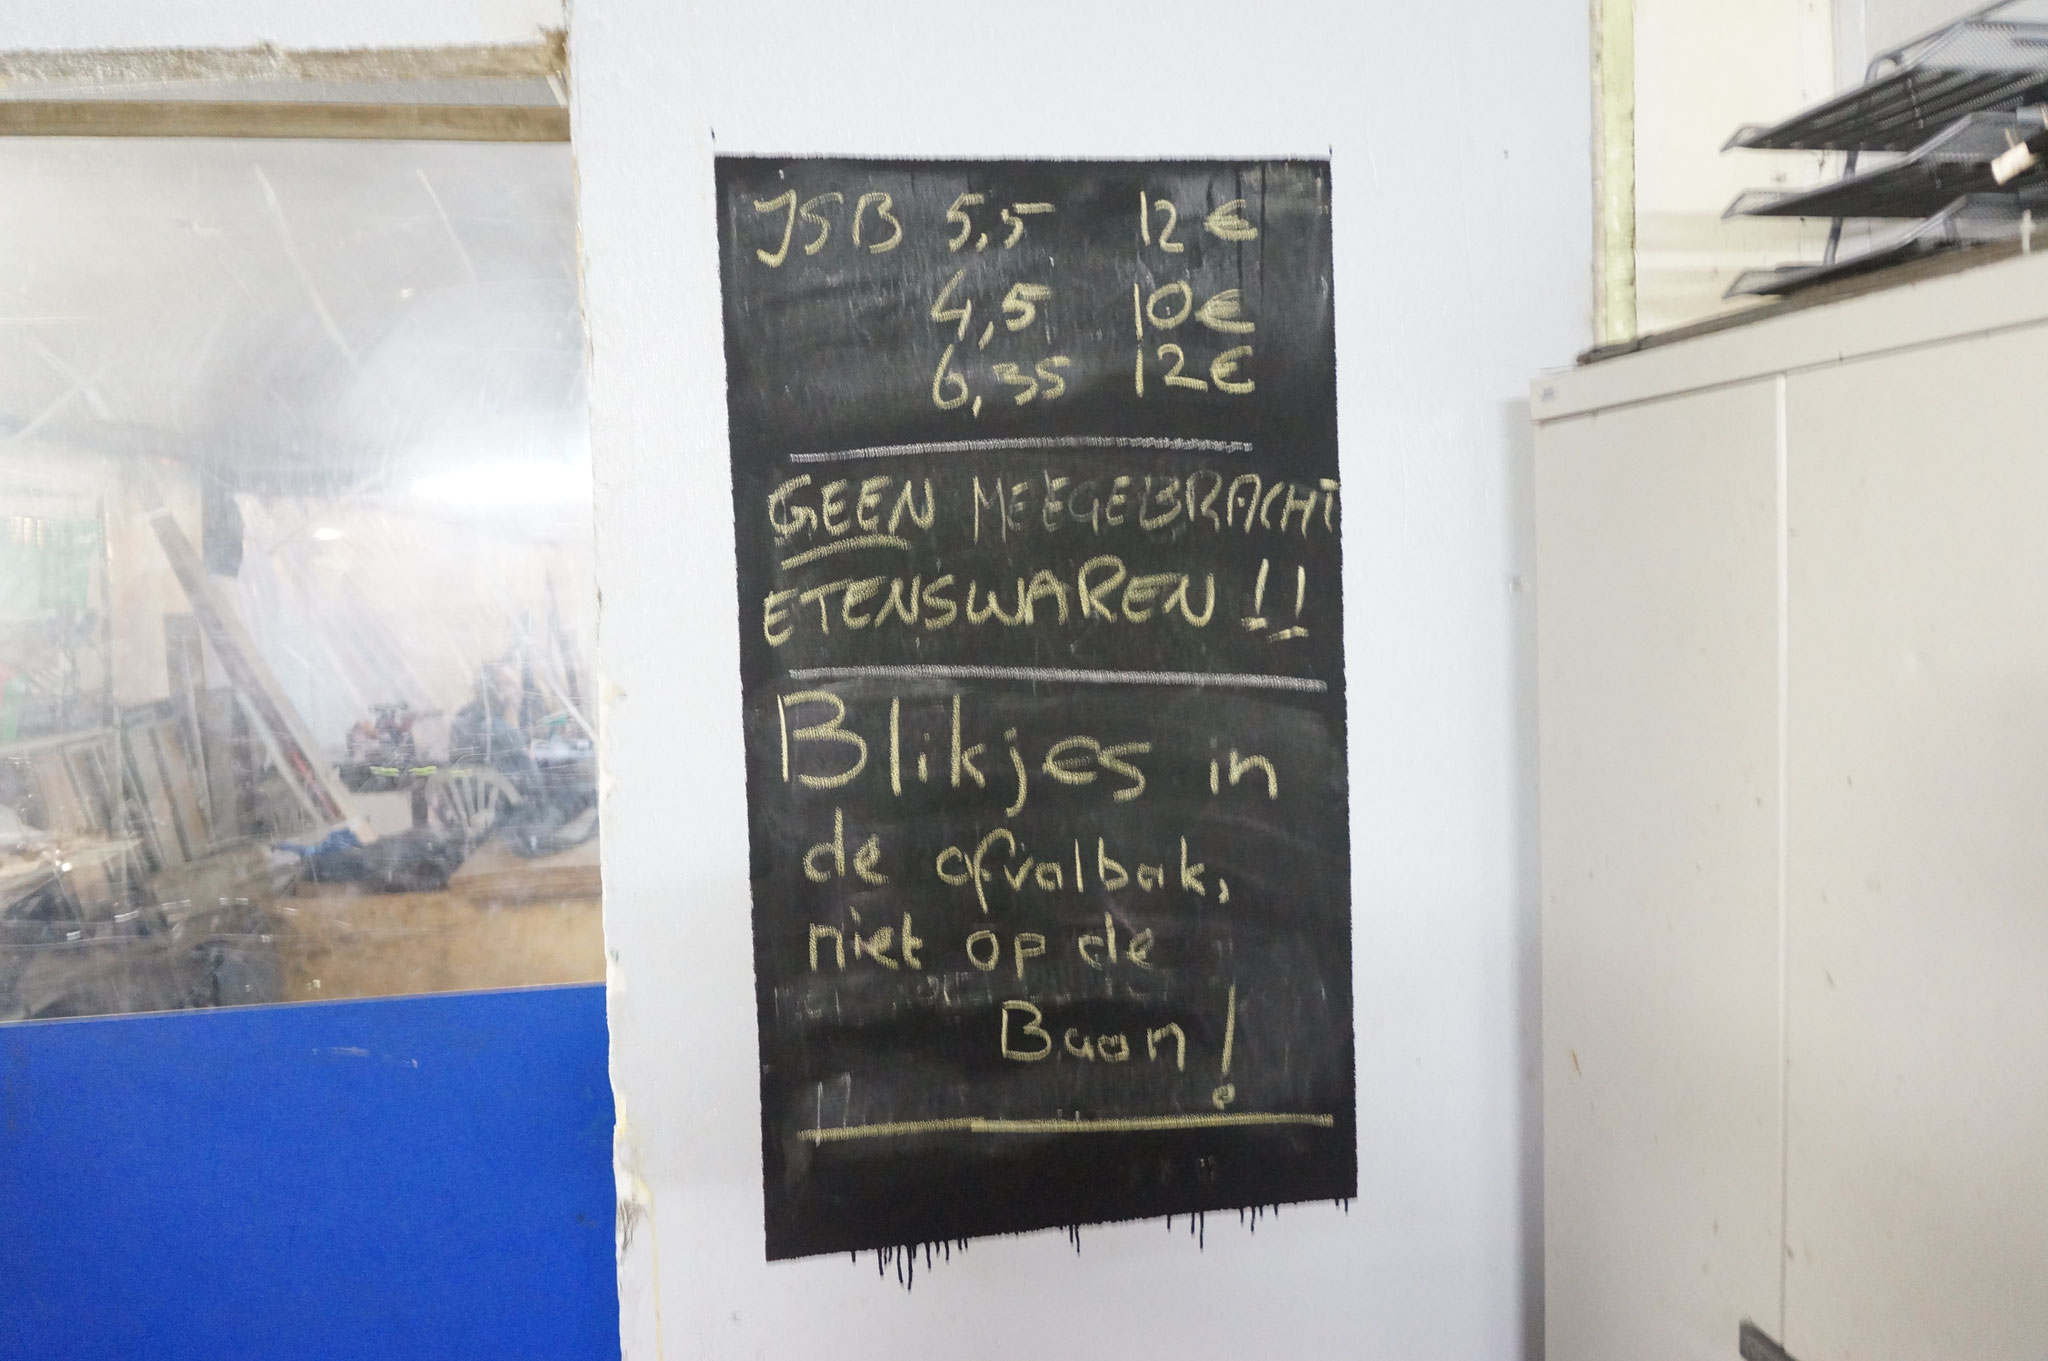 JSB 5,5 12€
4,5 10€
6,35 12€
GEEN MEEGEBRACHT
ETENSWAREN !!
Blikjes in
de afvalbak,
niet op de
Baan!